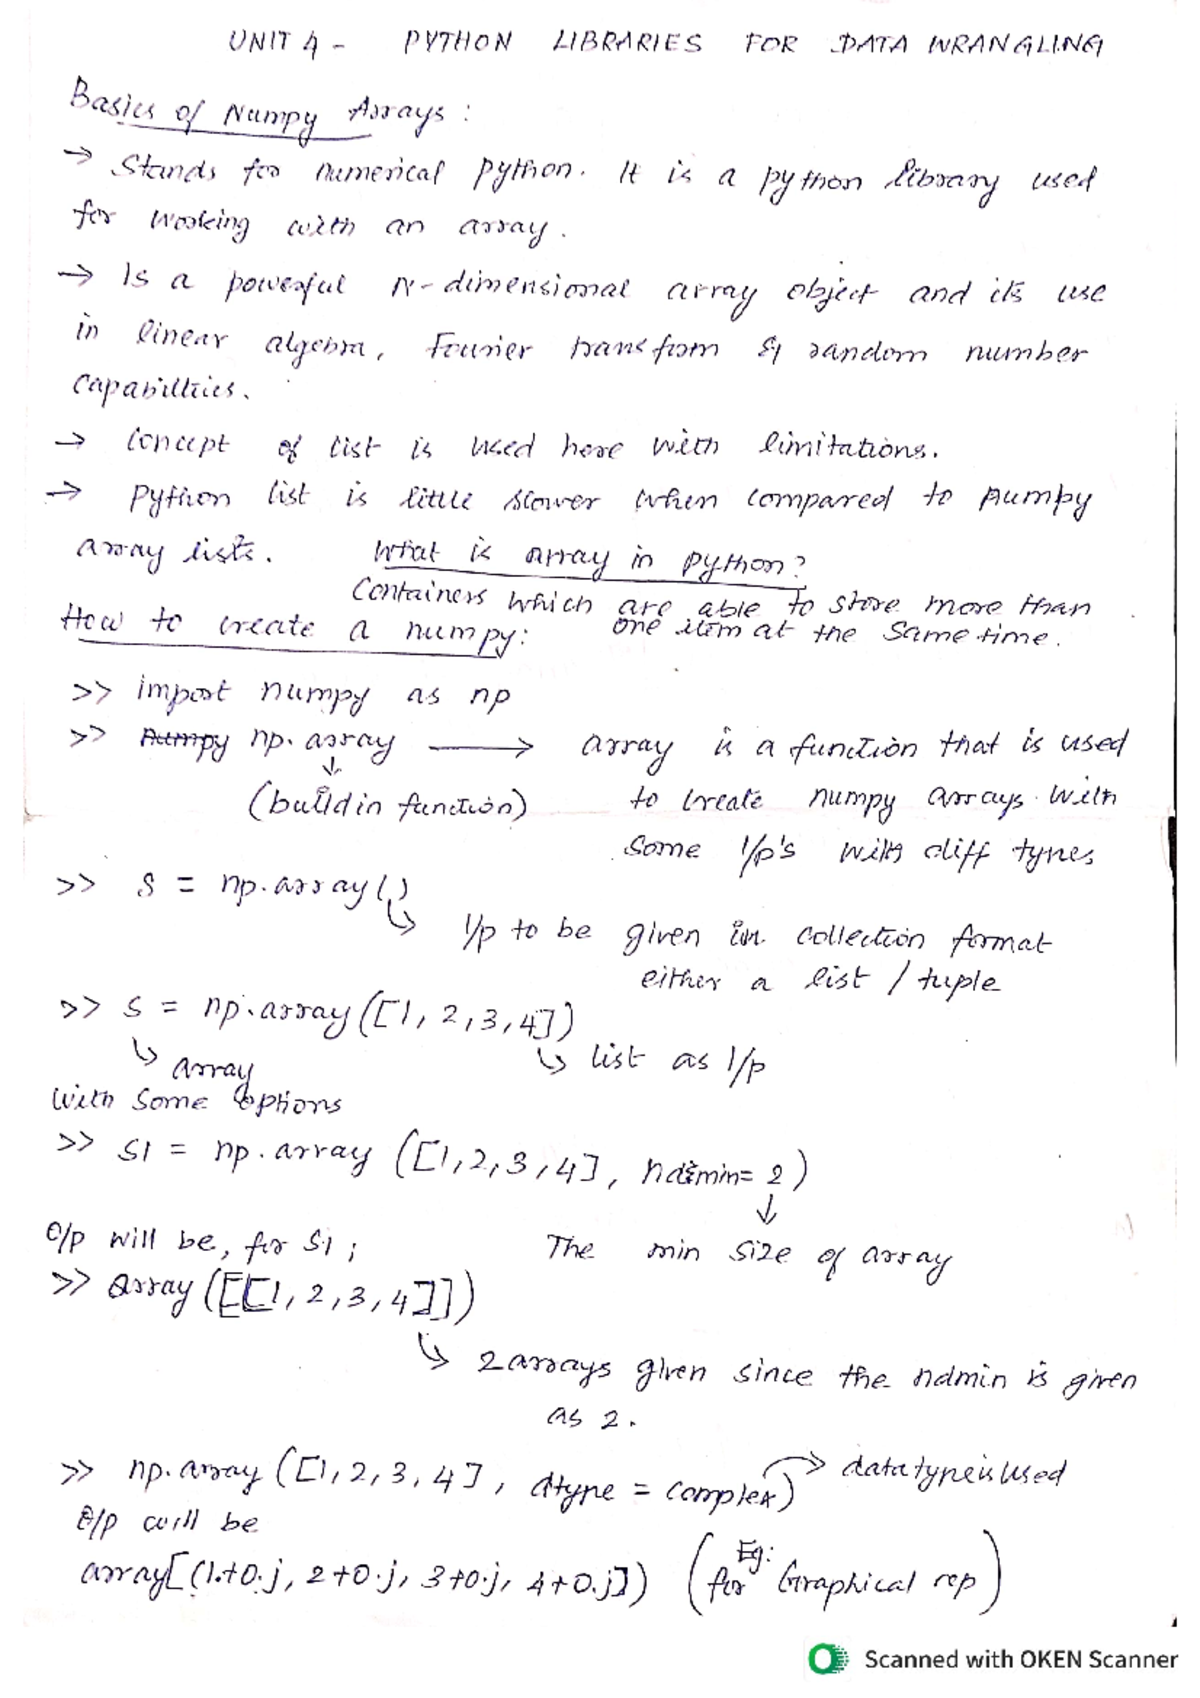 UNIT 4 - PYTHON LIBRARIES FOR DATA WRANGLING
Basics of Numpy Arrays :
→ Stands for numerical python. It is a python library used
for working with an array.
→ Is a powerful N-dimensional array object and its use
in linear algebra, Fourier transform & random number
capabilities.
→ Concept of list is used here with limitations.
→ Python list is little slower when compared to numpy
array lists.
What is array in python?
Containers which are able to store more than
one item at the same time.
How to create a numpy:
>> import numpy as np
>> Numpy np.array ⟶ array is a function that is used
↓
(buildin function)
to create numpy arrays with
some I/p's with diff types
>> S = np.array()
↳ I/p to be given in collection format
either a list / tuple
>> S = np.array([1, 2, 3, 4])
↳ array
↳ list as I/p
with some options
>> S1 = np.array ([1, 2, 3, 4], ndmin= 2)
↓
O/p will be, for S1 ;
The min size of array
>> array ([[1, 2, 3, 4]])
↳ 2 arrays given since the ndmin is given
as 2.
>> np.array ([1, 2, 3, 4], dtype = complex) → data type is used
O/p will be
array[(1.+0.j, 2+0.j, 3+0.j, 4+0.j]) (Eg: for Graphical rep)
Scanned with OKEN Scanner